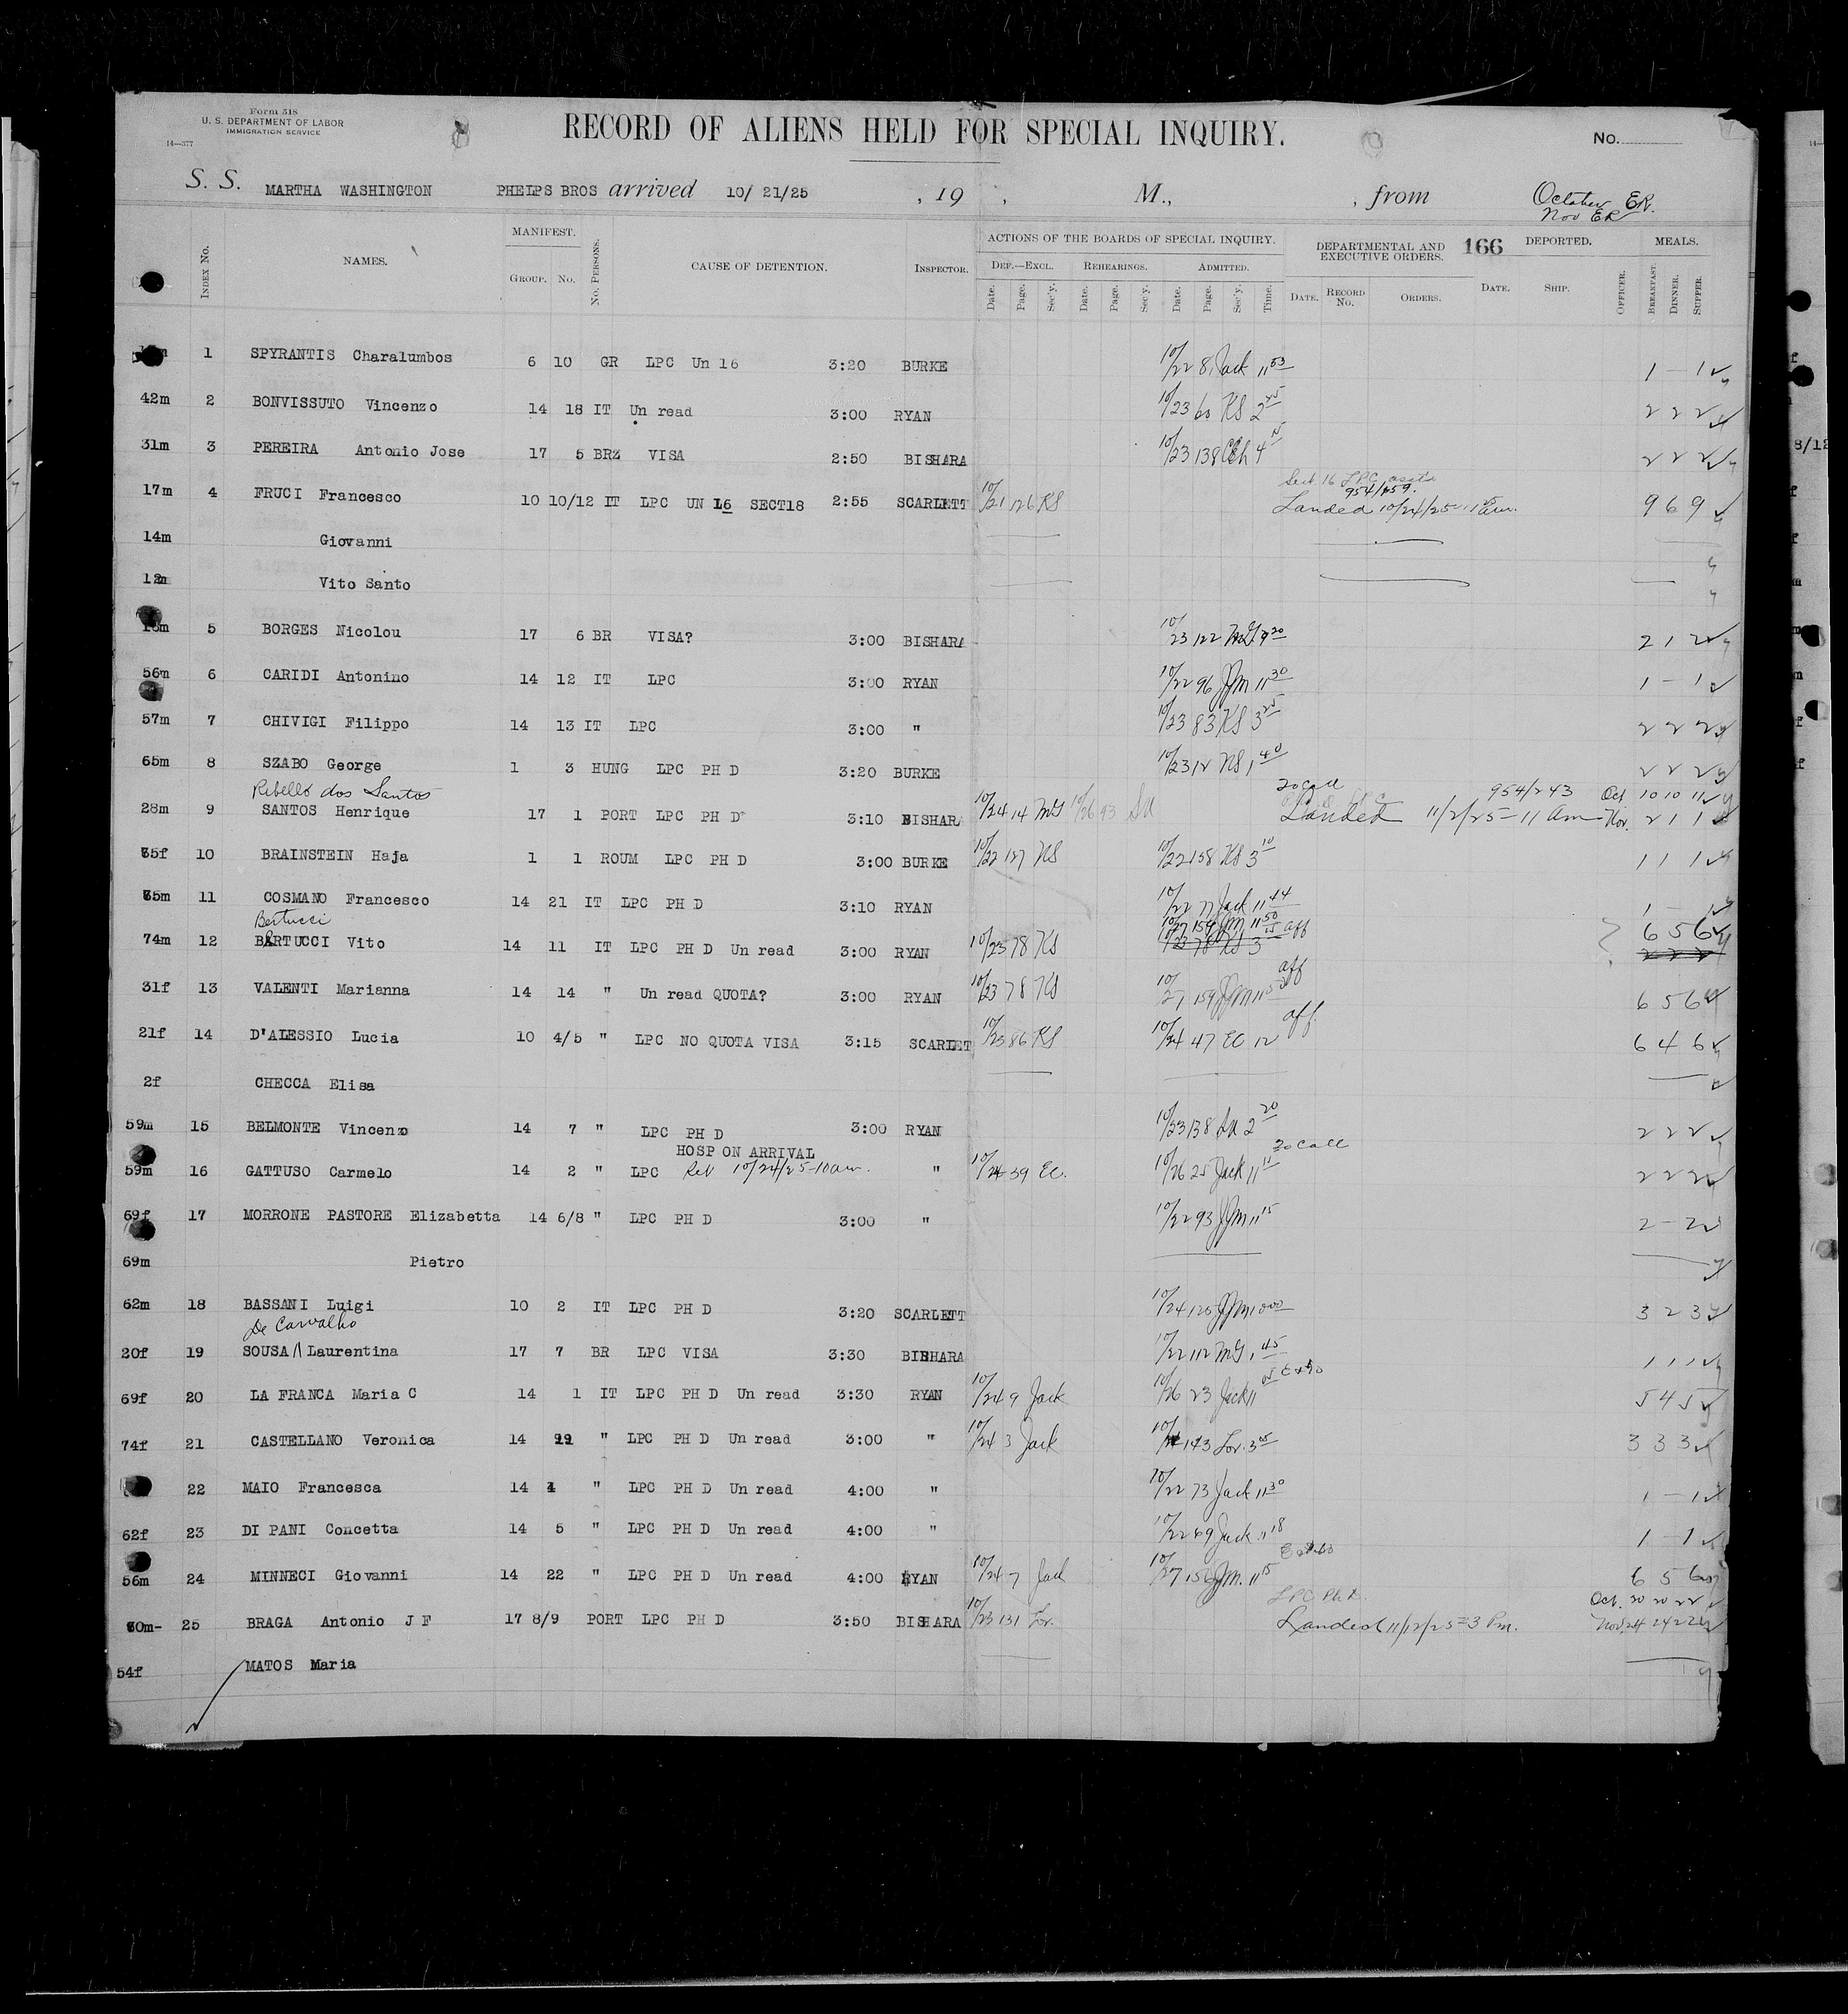 Form 518
U. S. DEPARTMENT OF LABOR
IMMIGRATION SERVICE
14—377
RECORD OF ALIENS HELD FOR SPECIAL INQUIRY.
No.
S. S. MARTHA WASHINGTON PHELPS BROS arrived 10/ 21/25 , 19 , M., , from October ER.
Nov ER
INDEX No. NAMES. MANIFEST. GROUP. No. No. PERSONS. CAUSE OF DETENTION. INSPECTOR. ACTIONS OF THE BOARDS OF SPECIAL INQUIRY. DEF.—EXCL. REHEARINGS. ADMITTED. Date. Page. Sec'y. Date. Page. Sec'y. Date. Page. Sec'y. Time. DEPARTMENTAL AND EXECUTIVE ORDERS. 166 DATE. RECORD No. ORDERS. DEPORTED. DATE. SHIP. OFFICER. MEALS. BREAKFAST. DINNER. SUPPER.
1 SPYRANTIS Charalumbos 6 10 GR LPC Un 16 3:20 BURKE 10/22 8 Jack 11 53 1 – 1
42m 2 BONVISSUTO Vincenzo 14 18 IT Un read 3:00 RYAN 10/23 60 KS 2 45 2 2 2
31m 3 PEREIRA Antonio Jose 17 5 BRZ VISA 2:50 BISHARA 10/23 138 4 15 2 2 2
Sect. 16 LPC
954/659.
17m 4 FRUCI Francesco 10 10/12 IT LPC UN 16 SECT18 2:55 SCARLETT 10/21 126 KS Landed 10/24/25 9 6 9
14m Giovanni
12m Vito Santo
5 BORGES Nicolou 17 6 BR VISA? 3:00 BISHARA 10/23 122 2 1 2
56m 6 CARIDI Antonino 14 12 IT LPC 3:00 RYAN 10/22 96 JJm 11 30 1 – 1
57m 7 CHIVIGI Filippo 14 13 IT LPC 3:00 " 10/23 83 KS 3 25 2 2 2
65m 8 SZABO George 1 3 HUNG LPC PH D 3:20 BURKE 10/23 12 1 40 2 2 2
Ribello dos Santos 954/243 Oct 10 10 11
28m 9 SANTOS Henrique 17 1 PORT LPC PH D 3:10 BISHARA 10/24 14 10/26 93 Landed 11/2/25 – 11 am Nov. 2 1 1
35f 10 BRAINSTEIN Haja 1 1 ROUM LPC PH D 3:00 BURKE 10/22 127 10/22 158 3 10 1 1 1
11 COSMANO Francesco 14 21 IT LPC PH D 3:10 RYAN 10/22 77 Jack 11 44
Bertucci 10/27 159 JJm 11 50
74m 12 BARTUCCI Vito 14 11 IT LPC PH D Un read 3:00 RYAN 10/23 78 KS 10/23 78 KS 3 15 aff 6 5 6
31f 13 VALENTI Marianna 14 14 " Un read QUOTA? 3:00 RYAN 10/23 78 KS 10/27 159 JJm aff 6 5 6
21f 14 D'ALESSIO Lucia 10 4/5 " LPC NO QUOTA VISA 3:15 SCARLET 10/23 86 KS 10/24 47 EC 12 aff. 6 4 6
2f CHECCA Elisa
59m 15 BELMONTE Vincenzo 14 7 " LPC PH D 3:00 RYAN 10/23 138 2 20 2 2 2
HOSP ON ARRIVAL
59m 16 GATTUSO Carmelo 14 2 " LPC Rel 10/24/25 – 10 am. " 10/24 39 EC. 10/26 25 Jack 11 2 2 2
69f 17 MORRONE PASTORE Elizabetta 14 6/8 " LPC PH D 3:00 " 10/22 93 JJm 11 15 2 – 2
69m Pietro
62m 18 BASSANI Luigi 10 2 IT LPC PH D 3:20 SCARLETT 10/24 125 JJm 3 2 3
De Carvalho
20f 19 SOUSA Laurentina 17 7 BR LPC VISA 3:30 BISHARA 10/22 112 1 45 1 1 1
69f 20 LA FRANCA Maria C 14 1 IT LPC PH D Un read 3:30 RYAN 10/24 9 Jack 10/26 23 Jack 11 5 4 5
74f 21 CASTELLANO Veronica 14 " LPC PH D Un read 3:00 " 10/24 3 Jack 143 Lor. 3 3 3 3
22 MAIO Francesca 14 4 " LPC PH D Un read 4:00 " 10/22 73 Jack 11 30 1 – 1
62f 23 DI PANI Concetta 14 5 " LPC PH D Un read 4:00 " 10/22 69 Jack 11 18 1 – 1
56m 24 MINNECI Giovanni 14 22 " LPC PH D Un read 4:00 RYAN 10/24 7 Jack 10/27 156 JJm. 11 15 6 5 6
LPC Ph D. Oct. 20 20 22
25 BRAGA Antonio J F 17 8/9 PORT LPC PH D 3:50 BISHARA 10/23 131 Lor. Landed 11/12/25 – 3 Pm. Nov.
54f MATOS Maria
8/12